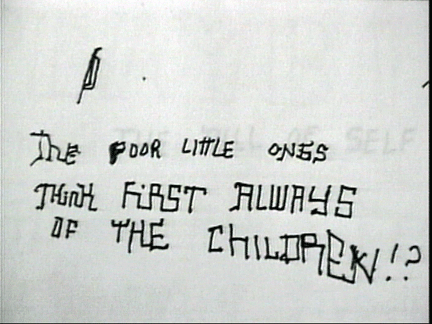 THE OF SELF
The POOR LITTLE ONES
THINK FIRST ALWAYS
OF THE CHILDREN!?